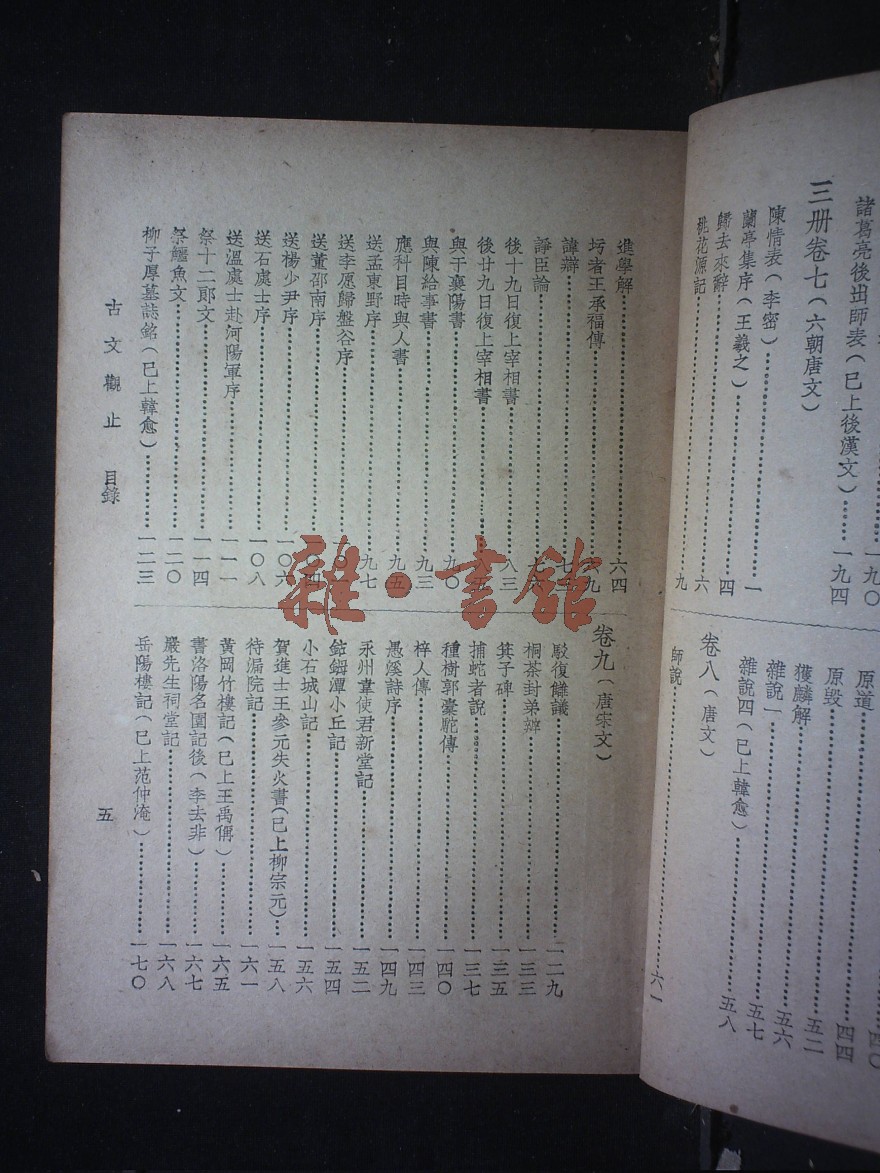 諸葛亮後出師表(已上後漢文)……一九四
三册卷七(六朝唐文)
陳情表(李密)……一
蘭亭集序(王羲之)……四
歸去來辭……六
桃花源記……九
原道
原毀……四四
獲麟解……五二
雜說一……五六
雜說四(已上韓愈)……五七
卷八(唐文)
師說……六一
進學解……六四
圬者王承福傳
諱辯
諍臣論
後十九日復上宰相書……八三
後廿九日復上宰相書
與于襄陽書……九〇
與陳給事書……九三
應科目時與人書……九五
送孟東野序……九七
送李愿歸盤谷序
送董邵南序
送楊少尹序……一〇六
送石處士序……一〇八
送溫處士赴河陽軍序……一一一
祭十二郎文……一一四
祭鱷魚文……一二〇
柳子厚墓誌銘(已上韓愈)……一二三
卷九(唐宋文)
駁復讎議……一二九
桐葉封弟辨……一三三
箕子碑……一三五
捕蛇者說……一三七
種樹郭橐駝傳……一四〇
梓人傳……一四三
愚溪詩序……一四九
永州韋使君新堂記……一五二
鈷鉧潭小丘記……一五四
小石城山記……一五六
賀進士王參元失火書(已上柳宗元)……一五八
待漏院記……一六一
黃岡竹樓記(已上王禹偁)……一六五
書洛陽名園記後(李去非)……一六七
嚴先生祠堂記……一六八
岳陽樓記(已上范仲淹)……一七〇
古文觀止 目錄
五
雜·書館